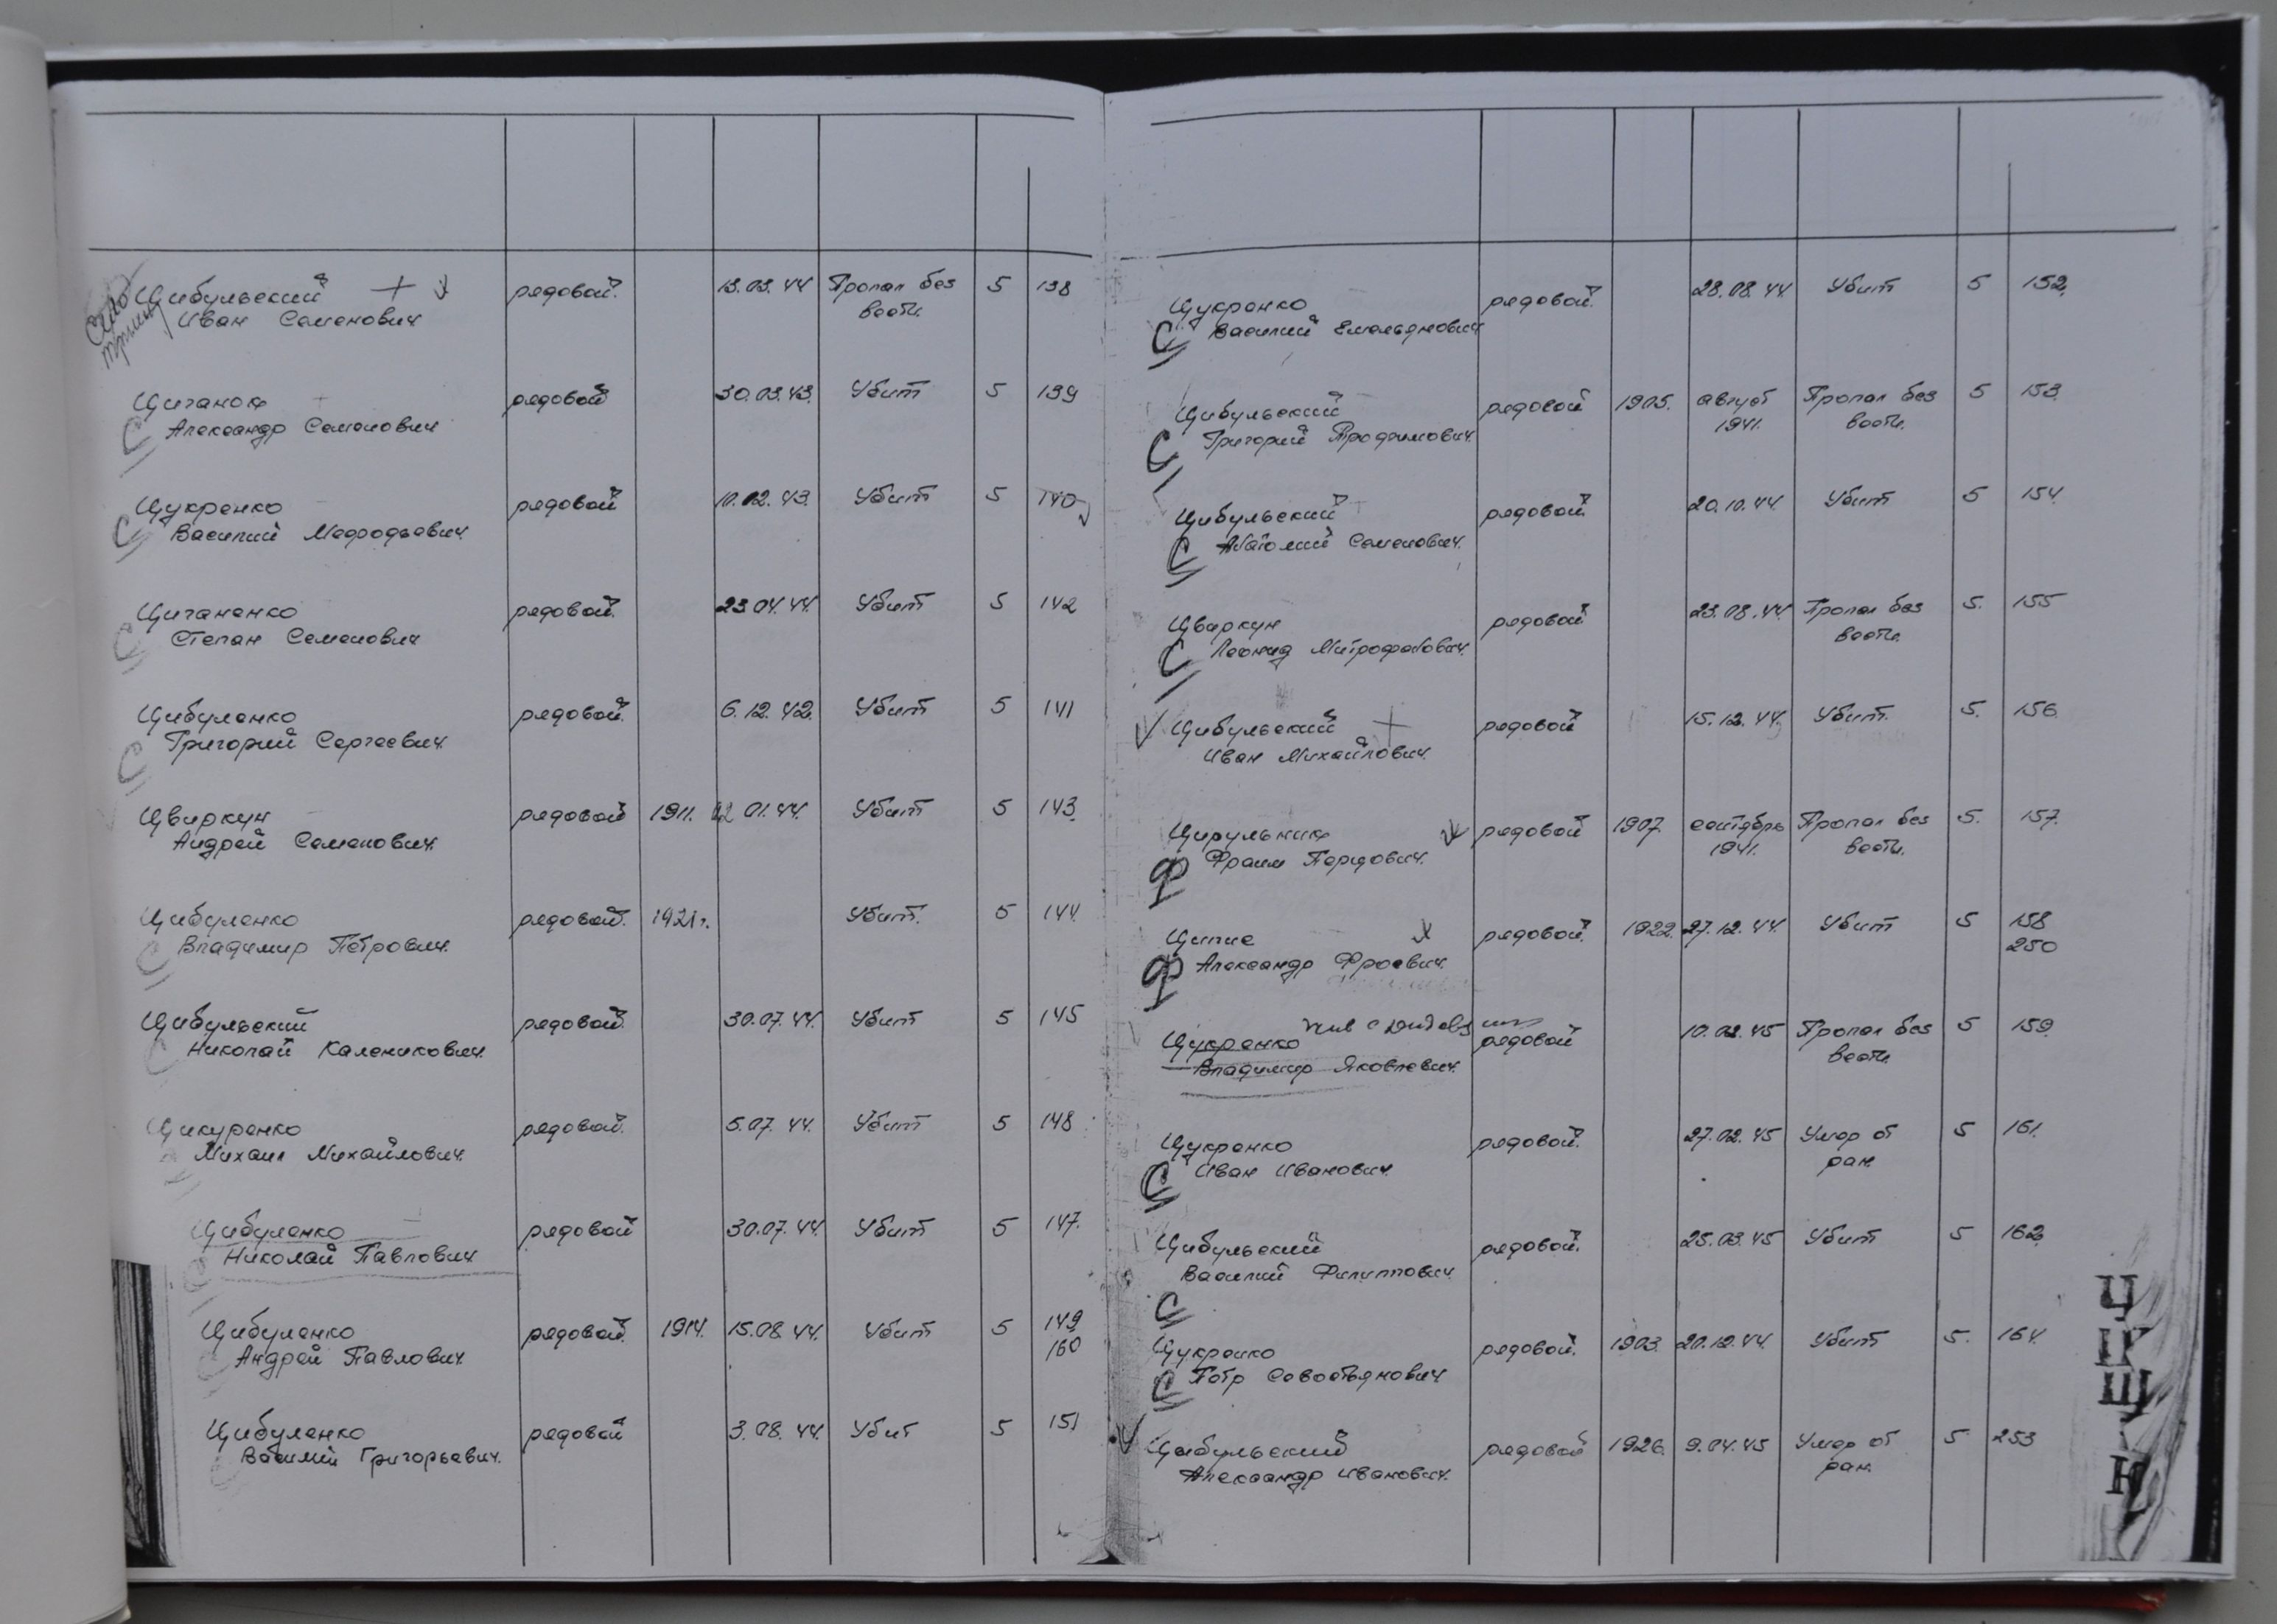 Цибульский + рядовой. 13.03.44 Пропал без 5 138
Иван Семенович вести.
Циганок рядовой 30.03.43. Убит 5 139
С Александр Семенович
Цукренко рядовой 10.02.43. Убит 5 140
С Василий Мефодьевич.
Циганенко рядовой. 23.04.44. Убит 5 142
С Степан Семенович
Цибуленко рядовой. 6.12.42. Убит 5 141
С Григорий Сергеевич.
Цвиркун рядовой 1911. 01.44. Убит 5 143.
Андрей Семенович.
Цибуленко рядовой. 1921г. Убит. 5 144.
С Владимир Петрович.
Цибульский рядовой. 30.07.44. Убит 5 145
С Николай Каленикович.
Цикуренко рядовой. 5.07.44. Убит 5 148
Михаил Михайлович.
Цибуленко рядовой 30.07.44. Убит 5 147.
Николай Павлович
Цибуленко рядовой. 1914. 15.08.44. Убит 5 149
С Андрей Павлович. 160
Цибуленко рядовой 3.08.44. Убит 5 151
С Василий Григорьевич.
Цукренко рядовой. 28.08.44. Убит 5 152.
С Василий Емельянович
Цибульский рядовой 1905. август Пропал без 5 153.
С Григорий Трофимович. 1941. вести.
Цибульский рядовой. 20.10.44. Убит 5 154.
С Анатолий Семенович.
Цвиркун рядовой 23.08.44. Пропал без 5. 155
С Леонид Митрофанович. вести.
Цибульский + рядовой 15.12.44. Убит. 5. 156.
Иван Михайлович.
Цирульник рядовой 1907. сентябрь Пропал без 5. 157.
Ф Фроим Пердович. 1941. вести.
Ципис рядовой. 1922. 27.12.44. Убит 5 158
Ф Александр Фроевич. 250
Цукренко рядовой 10.02.45 Пропал без 5 159.
Владимир Яковлевич. вести.
Цукренко рядовой. 27.02.45 Умер от 5 161.
С Иван Иванович. ран.
Цибульский рядовой. 25.03.45 Убит 5 162.
Василий Филиппович.
С
Цукренко рядовой. 1903. 20.12.44. Убит 5. 164.
С Петр Севостьянович
Цыбульский рядовой 1926. 9.04.45 Умер от 5 253
Александр Иванович. ран.
Ч
Ц
Щ
Ю